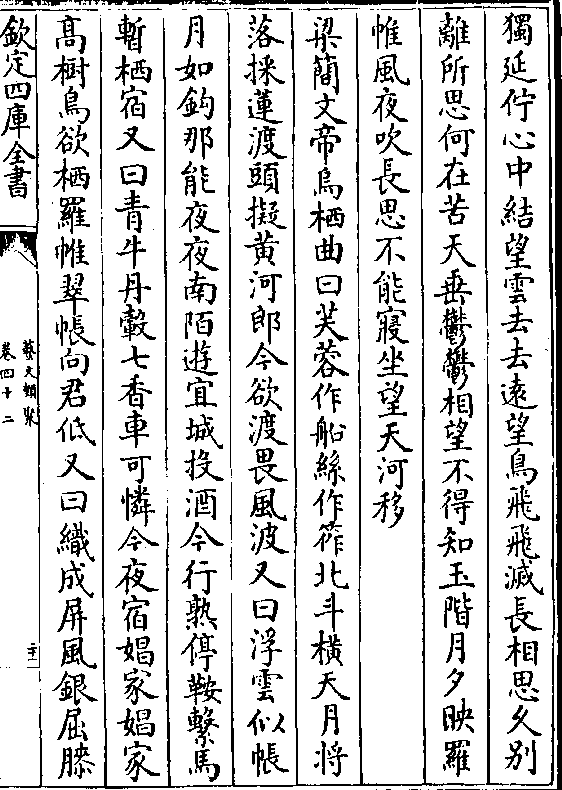 獨延佇心中結望雲去去遠望鳥飛飛滅長相思久别
離所思何在苦天垂鬱鬱相望不得知玉階月夕映羅
帷風夜吹長思不能寢坐望天河移
梁簡文帝烏栖曲曰芙蓉作船絲作筰北斗横天月将
落採蓮渡頭擬黄河郎今欲渡畏風波又曰浮雲似帳
月如鈎那能夜夜南陌遊宜城投酒今行熟停鞍繫馬
暫栖宿又曰青牛丹轂七香車可憐今夜宿娼家娼家
髙樹烏欲栖羅帷翠帳向君低又曰織成屏風銀屈膝
欽定四庫全書
藝文類聚
卷四十二